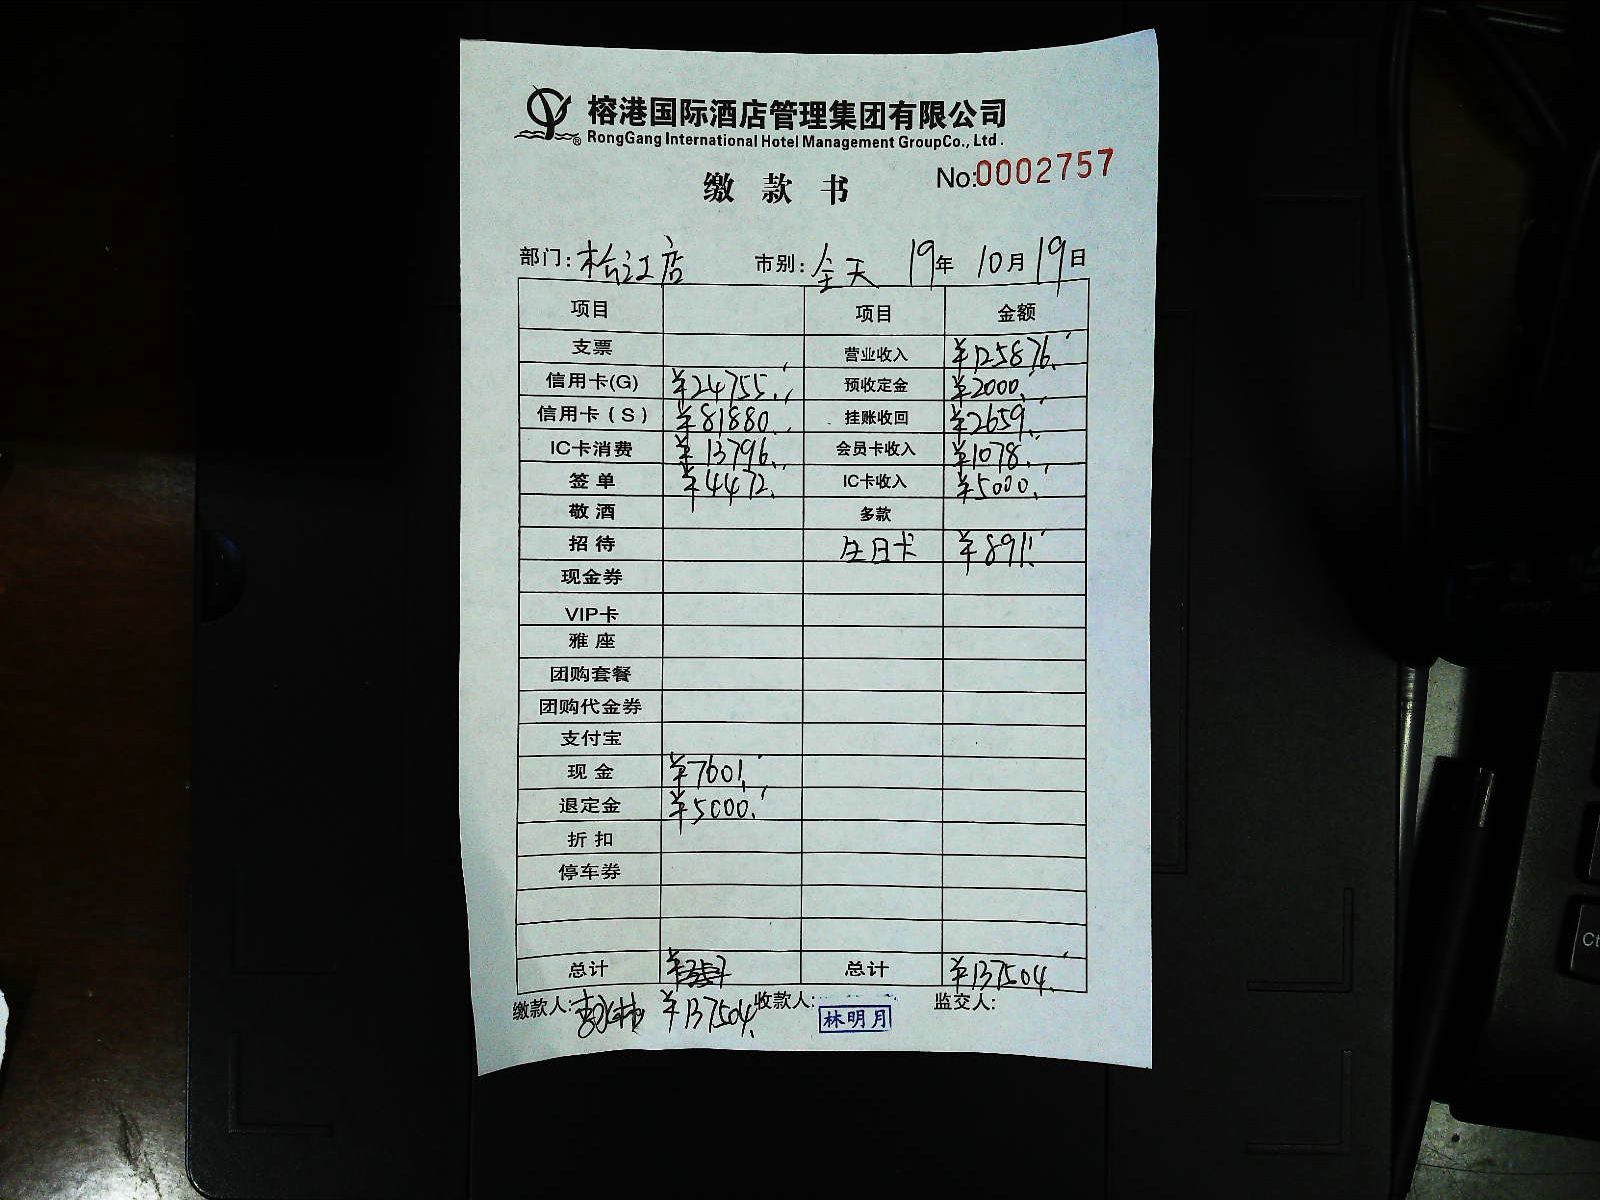 榕港国际酒店管理集团有限公司
RongGang International Hotel Management GroupCo., Ltd.
No:0002757
缴 款 书
部门: 松江店 市别: 全天 19年 10月 19日
项目 项目 金额
支票 营业收入 ¥125876.
信用卡(G) ¥24755. 预收定金 ¥2000.
信用卡(S) ¥81880. 挂账收回 ¥2659.
IC卡消费 ¥13796. 会员卡收入 ¥1078.
签单 ¥4472. IC卡收入 ¥5000.
敬酒 多款
招待 生日卡 ¥891.
现金券
VIP卡
雅座
团购套餐
团购代金券
支付宝
现金 ¥7601.
退定金 ¥5000.
折扣
停车券
总计 总计 ¥137504.
缴款人: ¥137504. 收款人: 林明月 监交人:
Ct